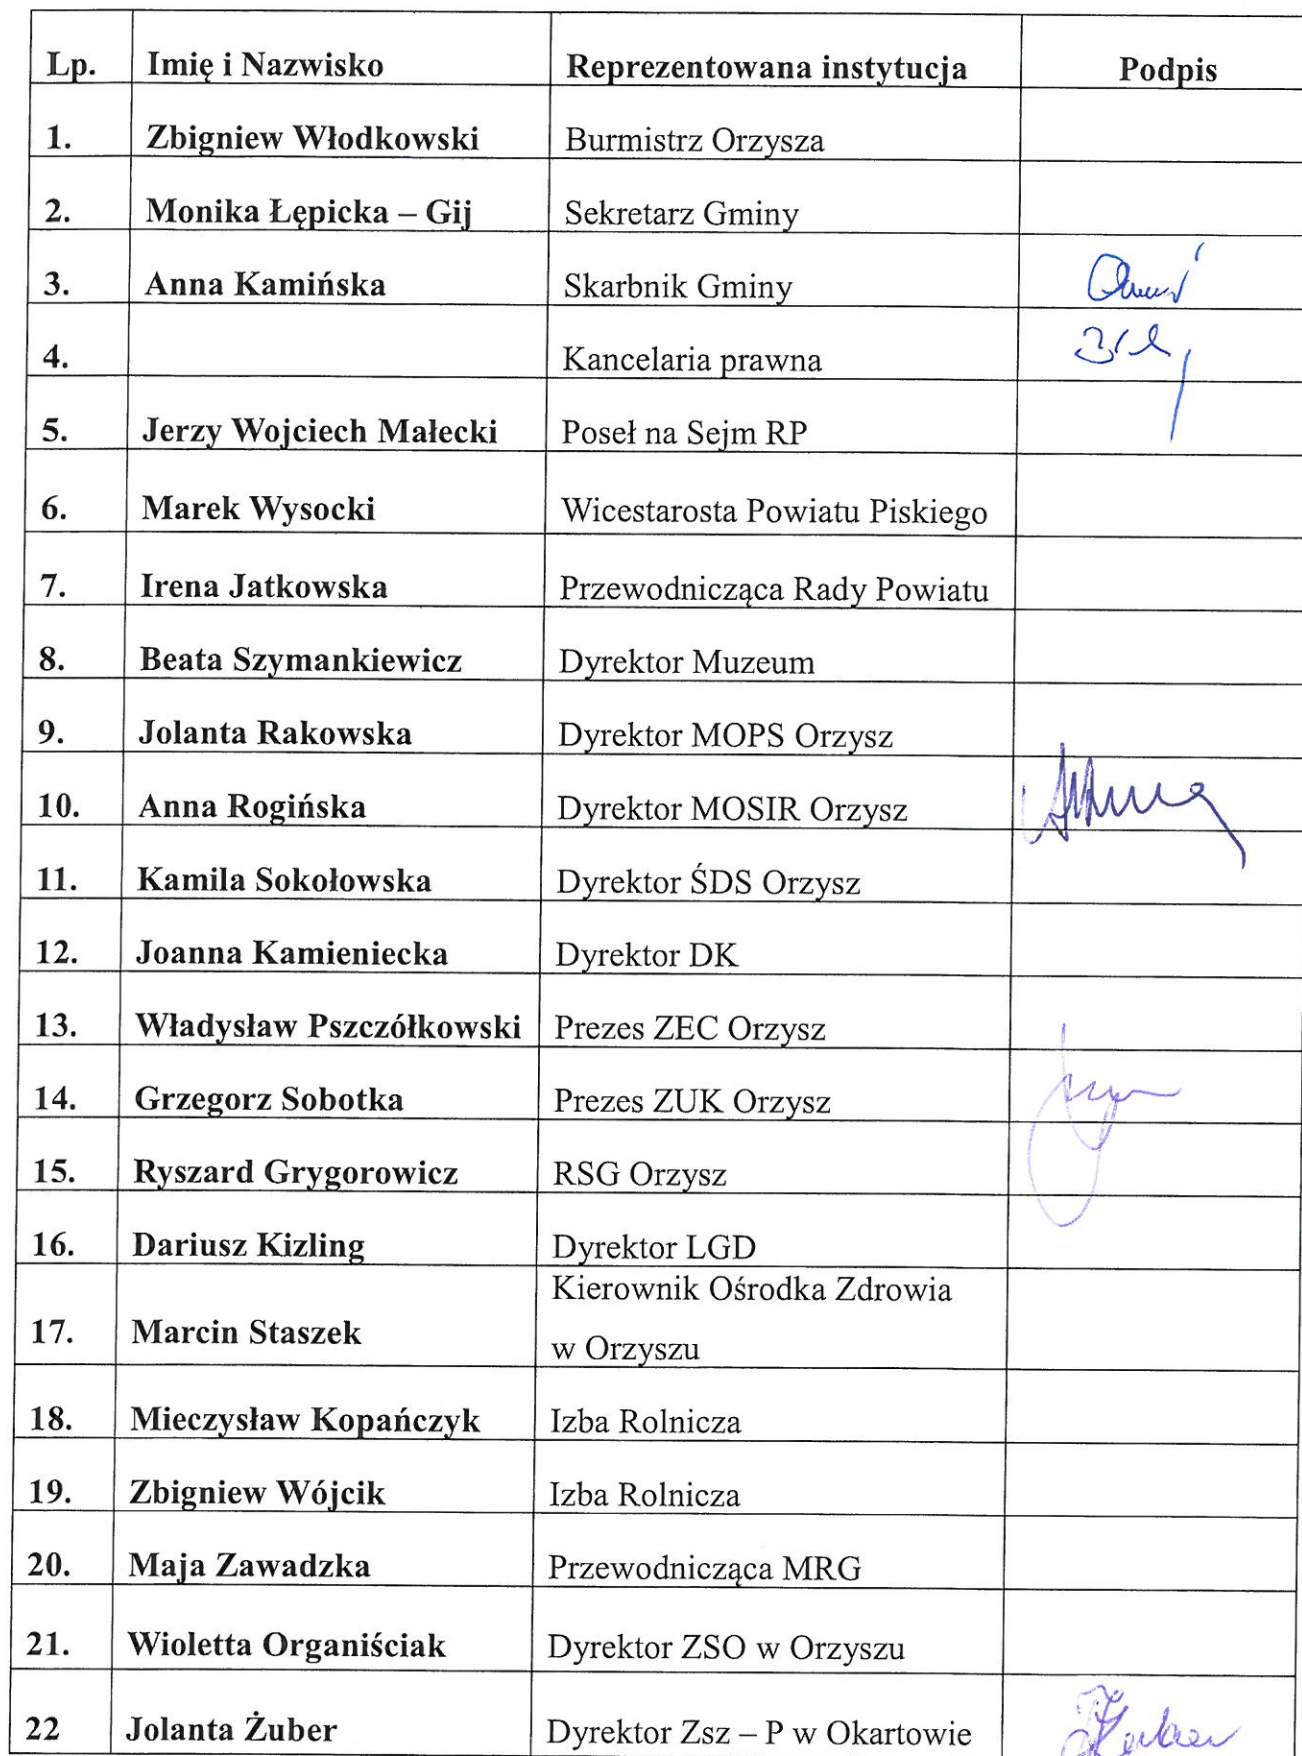 Lp. Imię i Nazwisko Reprezentowana instytucja Podpis
1. Zbigniew Włodkowski Burmistrz Orzysza
2. Monika Łępicka – Gij Sekretarz Gminy
3. Anna Kamińska Skarbnik Gminy
4. Kancelaria prawna
5. Jerzy Wojciech Małecki Poseł na Sejm RP
6. Marek Wysocki Wicestarosta Powiatu Piskiego
7. Irena Jatkowska Przewodnicząca Rady Powiatu
8. Beata Szymankiewicz Dyrektor Muzeum
9. Jolanta Rakowska Dyrektor MOPS Orzysz
10. Anna Rogińska Dyrektor MOSIR Orzysz
11. Kamila Sokołowska Dyrektor ŚDS Orzysz
12. Joanna Kamieniecka Dyrektor DK
13. Władysław Pszczółkowski Prezes ZEC Orzysz
14. Grzegorz Sobotka Prezes ZUK Orzysz
15. Ryszard Grygorowicz RSG Orzysz
16. Dariusz Kizling Dyrektor LGD
17. Marcin Staszek Kierownik Ośrodka Zdrowia
w Orzyszu
18. Mieczysław Kopańczyk Izba Rolnicza
19. Zbigniew Wójcik Izba Rolnicza
20. Maja Zawadzka Przewodnicząca MRG
21. Wioletta Organiściak Dyrektor ZSO w Orzyszu
22 Jolanta Żuber Dyrektor Zsz – P w Okartowie